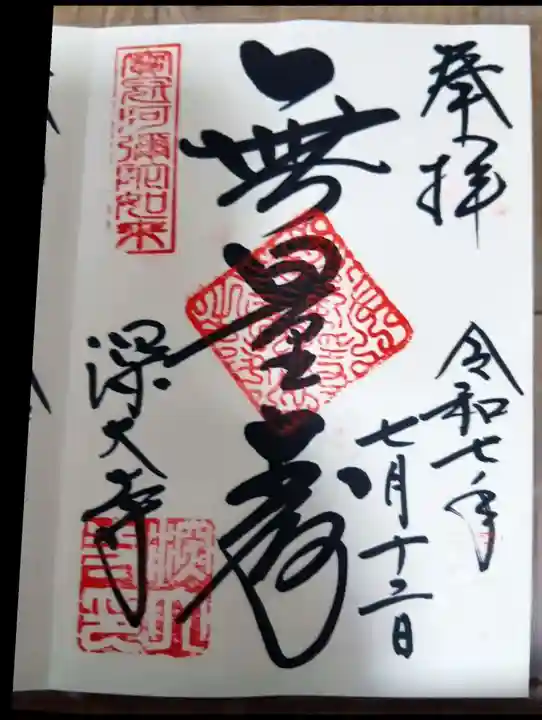 奉拝
令和七年
七月十二日
無量寿
寶冠阿彌陀如来
深大寺